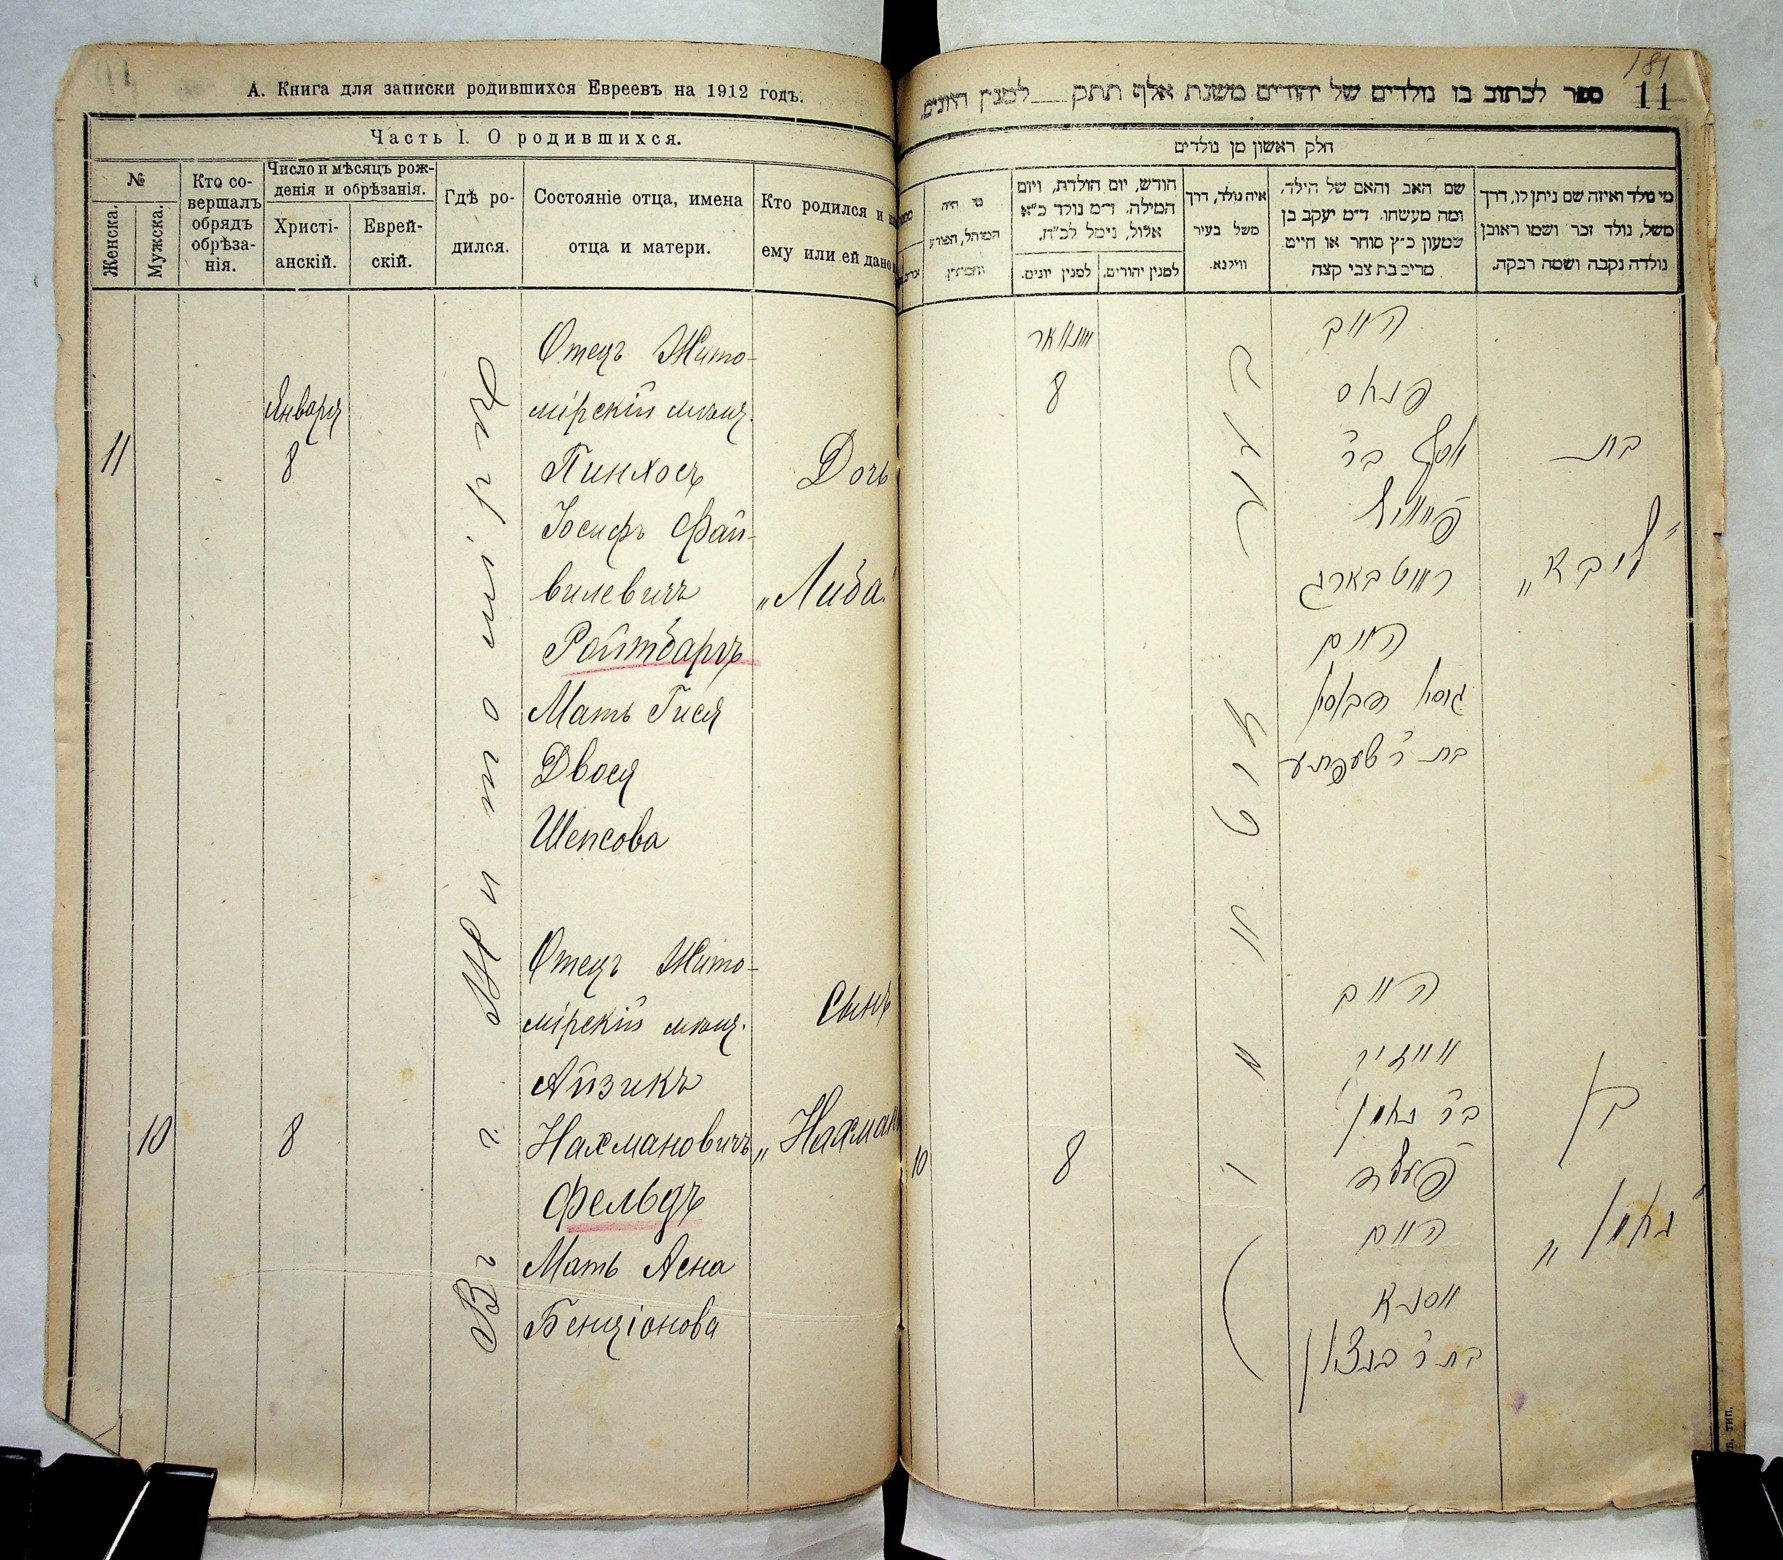 А. Книга для записки родившихся Евреевъ на 1912 годъ.
Часть I. О родившихся.
№
Женска.
Мужска.
Кто со-
вершалъ
обрядъ
обрѣза-
нія.
Число и мѣсяцъ рож-
денія и обрѣзанія.
Христі-
анскій.
Еврей-
скій.
Гдѣ ро-
дился.
Состояніе отца, имена
отца и матери.
Кто родился и
ему или ей дано
11
Января
8
Въ г. Житомірѣ
Отецъ Жито-
мірскій мѣщ.
Пинхосъ
Іосифъ Фай-
вилевичъ
Ройтбаргъ
Мать Гися
Двося
Шепсова
Дочь
„Либа“
10
8
Отецъ Жито-
мірскій мѣщ.
Айзикъ
Нахмановичъ
Фельдъ
Мать Асна
Бенціонова
Сынъ
„Нахман
181
11
ספר לכתוב בו נולדים של יהודים משנת אלף תתק__למנין היונים.
חלק ראשון מן נולדים
מי נולד ואיזה שם ניתן לו, דרך
משל, נולד זכר ושמו ראובן
נולדה נקבה ושמה רבקה.
שם האב והאם של הילד,
ומה מעשהו. ד״מ יעקב בן
שמעון כ״ץ סוחר או חייט
מרים בת צבי קצה
איה נולד, דרך
משל בעיר
ווילנא.
חודש, יום הולדת, ויום
המילה. ד״מ נולד כ״א
אלול, נימל לכ״ח.
למנין יהודים.
למנין יונים.
מי היה
המוהל, הפורע
והמוצץ.
יאנואר
8
האב
פנחס
יוסף בר
פייוויל
רויטבארג
האם
בת
„ליבא“
10
8
האב
אייזיק
בר נחמן
פעלד
האם
אסנא
בת ר׳ בנציון
בן
„נחמן“